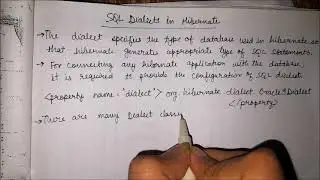 SQL Dialects in Hibernate
→ The dialect specifies the type of database used in hibernate so
that hibernate generates appropriate type of SQL statements.
→ For connecting any hibernate application with the database,
it is required to provide the configuration of SQL dialect.
<property name="dialect"> org.hibernate.dialect.Oracle9Dialect
</property>
→ There are many Dialect classes